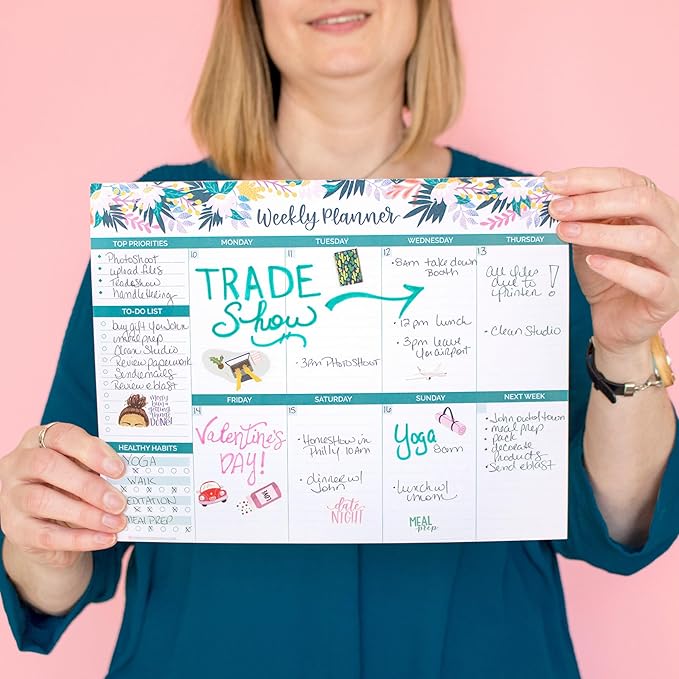 Weekly Planner
TOP PRIORITIES
Photoshoot
upload files
Tradeshow
handlettering
TO-DO LIST
buy gift for John
meal prep
Clean Studio
Review paperwork
Send emails
Review eblast
messy
bun &
getting
stuff
DONE!
HEALTHY HABITS
YOGA
WALK
MEDITATION
MEAL PREP
MONDAY
10
TRADE
Show
TUESDAY
11
• 3pm PHOTOSHOOT
WEDNESDAY
12
• 8am take down
Booth
• 12pm lunch
• 3pm leave
for airport
THURSDAY
13
All files
due to
printer!
• Clean Studio
FRIDAY
14
Valentine's
DAY!
LOVE
SATURDAY
15
• Home show in
Philly 10AM
• dinner w/
John
date
NIGHT
SUNDAY
16
Yoga
8am
• lunch w/
mom
MEAL
prep
NEXT WEEK
• John out of town
• meal prep
• pack
• decorate
products
• Send eblast